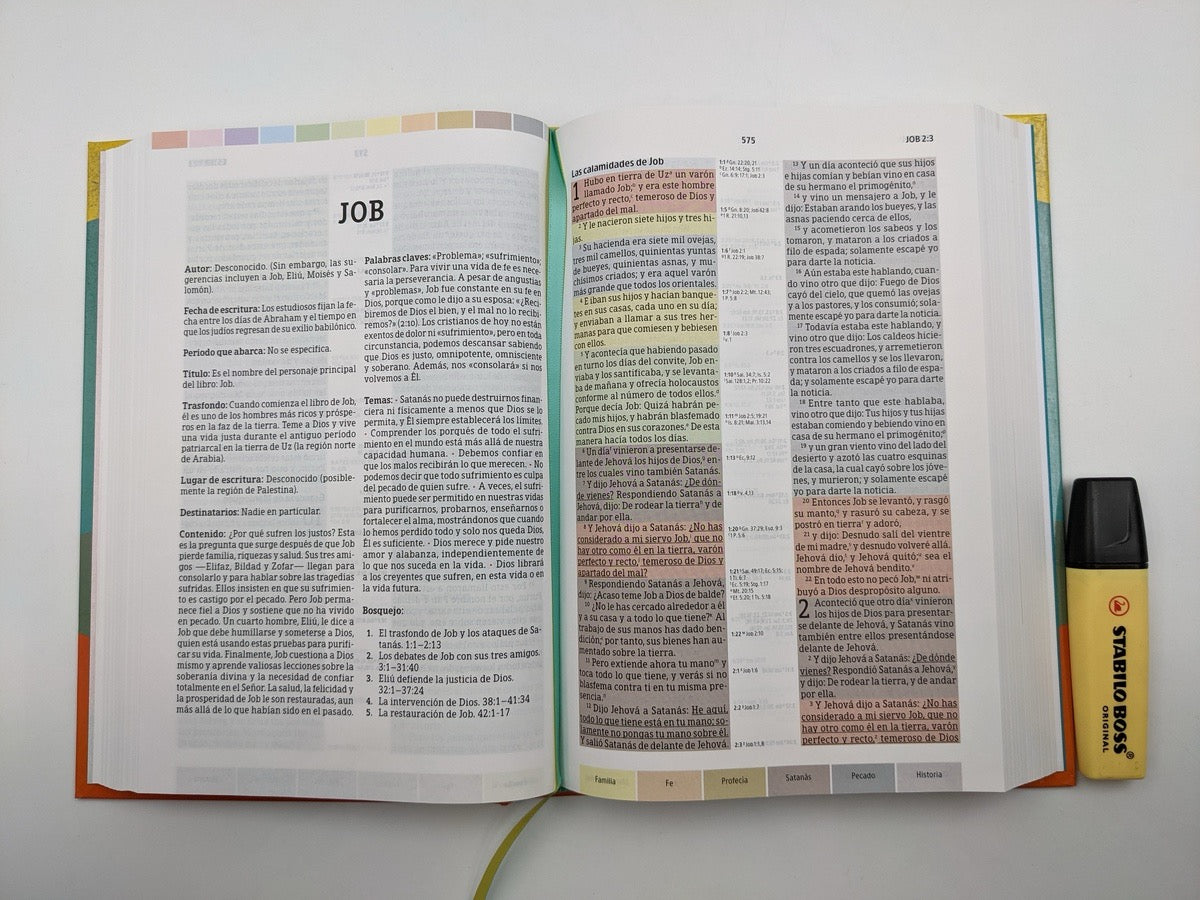 JOB
Autor: Desconocido. (Sin embargo, las su-
gerencias incluyen a Job, Eliú, Moisés y Sa-
lomón).
Fecha de escritura: Los estudiosos fijan la fe-
cha entre los días de Abraham y el tiempo en
que los judíos regresan de su exilio babilónico.
Periodo que abarca: No se especifica.
Título: Es el nombre del personaje principal
del libro: Job.
Trasfondo: Cuando comienza el libro de Job,
él es uno de los hombres más ricos y próspe-
ros en la faz de la tierra. Teme a Dios y vive
una vida justa durante el antiguo período
patriarcal en la tierra de Uz (la región norte
de Arabia).
Lugar de escritura: Desconocido (posible-
mente la región de Palestina).
Destinatarios: Nadie en particular.
Contenido: ¿Por qué sufren los justos? Esta
es la pregunta que surge después de que Job
pierde familia, riquezas y salud. Sus tres ami-
gos —Elifaz, Bildad y Zofar— llegan para
consolarlo y para hablar sobre las tragedias
sufridas. Ellos insisten en que su sufrimien-
to es castigo por el pecado. Pero Job perma-
nece fiel a Dios y sostiene que no ha vivido
en pecado. Un cuarto hombre, Eliú, le dice a
Job que debe humillarse y someterse a Dios,
quien está usando estas pruebas para purifi-
car su vida. Finalmente, Job cuestiona a Dios
mismo y aprende valiosas lecciones sobre la
soberanía divina y la necesidad de confiar
totalmente en el Señor. La salud, la felicidad y
la prosperidad de Job le son restauradas, aun
más allá de lo que habían sido en el pasado.
Palabras claves: «Problema»; «sufrimiento»;
«consolar». Para vivir una vida de fe es nece-
saria la perseverancia. A pesar de angustias
y «problemas», Job fue constante en su fe en
Dios, porque como le dijo a su esposa: «¿Reci-
biremos de Dios el bien, y el mal no lo recibi-
remos?» (2:10). Los cristianos de hoy no están
exentos de dolor ni «sufrimiento», pero en toda
circunstancia, podemos descansar sabiendo
que Dios es justo, omnipotente, omnisciente
y soberano. Además, nos «consolará» si nos
volvemos a Él.
Temas: · Satanás no puede destruirnos finan-
ciera ni físicamente a menos que Dios se lo
permita, y Él siempre establecerá los límites.
· Comprender los porqués de todo el sufri-
miento en el mundo está más allá de nuestra
capacidad humana. · Debemos confiar en
que los malos recibirán lo que merecen. · No
podemos decir que todo sufrimiento es culpa
del pecado de quien sufre. · A veces, el sufri-
miento puede ser permitido en nuestras vidas
para purificarnos, probarnos, enseñarnos o
fortalecer el alma, mostrándonos que cuando
lo hemos perdido todo y solo nos queda Dios,
Él es suficiente. · Dios merece y pide nuestro
amor y alabanza, independientemente de
lo que nos suceda en la vida. · Dios librará
a los creyentes que sufren, en esta vida o en
la vida futura.
Bosquejo:
1. El trasfondo de Job y los ataques de Sa-
tanás. 1:1–2:13
2. Los debates de Job con sus tres amigos.
3:1–31:40
3. Eliú defiende la justicia de Dios.
32:1–37:24
4. La intervención de Dios. 38:1–41:34
5. La restauración de Job. 42:1-17
575
JOB 2:3
Las calamidades de Job
1 Hubo en tierra de Uz un varón
llamado Job, y era este hombre
perfecto y recto, temeroso de Dios y
apartado del mal.
2 Y le nacieron siete hijos y tres hi-
jas.
3 Su hacienda era siete mil ovejas,
tres mil camellos, quinientas yuntas
de bueyes, quinientas asnas, y mu-
chísimos criados; y era aquel varón
más grande que todos los orientales.
4 E iban sus hijos y hacían banque-
tes en sus casas, cada uno en su día;
y enviaban a llamar a sus tres her-
manas para que comiesen y bebiesen
con ellos.
5 Y acontecía que habiendo pasado
en turno los días del convite, Job en-
viaba y los santificaba, y se levanta-
ba de mañana y ofrecía holocaustos
conforme al número de todos ellos.
Porque decía Job: Quizá habrán pe-
cado mis hijos, y habrán blasfemado
contra Dios en sus corazones. De esta
manera hacía todos los días.
6 Un día vinieron a presentarse de-
lante de Jehová los hijos de Dios, en-
tre los cuales vino también Satanás.
7 Y dijo Jehová a Satanás: ¿De dón-
de vienes? Respondiendo Satanás a
Jehová, dijo: De rodear la tierra y de
andar por ella.
8 Y Jehová dijo a Satanás: ¿No has
considerado a mi siervo Job, que no
hay otro como él en la tierra, varón
perfecto y recto, temeroso de Dios y
apartado del mal?
9 Respondiendo Satanás a Jehová,
dijo: ¿Acaso teme Job a Dios de balde?
10 ¿No le has cercado alrededor a él
y a su casa y a todo lo que tiene? Al
trabajo de sus manos has dado ben-
dición; por tanto, sus bienes han au-
mentado sobre la tierra.
11 Pero extiende ahora tu mano y
toca todo lo que tiene, y verás si no
blasfema contra ti en tu misma pre-
sencia.
12 Dijo Jehová a Satanás: He aquí,
todo lo que tiene está en tu mano; so-
lamente no pongas tu mano sobre él.
Y salió Satanás de delante de Jehová.
13 Y un día aconteció que sus hijos
e hijas comían y bebían vino en casa
de su hermano el primogénito,
14 y vino un mensajero a Job, y le
dijo: Estaban arando los bueyes, y las
asnas paciendo cerca de ellos,
15 y acometieron los sabeos y los
tomaron, y mataron a los criados a
filo de espada; solamente escapé yo
para darte la noticia.
16 Aún estaba este hablando, cuan-
do vino otro que dijo: Fuego de Dios
cayó del cielo, que quemó las ovejas
y a los pastores, y los consumió; sola-
mente escapé yo para darte la noticia.
17 Todavía estaba este hablando, y
vino otro que dijo: Los caldeos hicie-
ron tres escuadrones, y arremetieron
contra los camellos y se los llevaron,
y mataron a los criados a filo de espa-
da; y solamente escapé yo para darte
la noticia.
18 Entre tanto que este hablaba,
vino otro que dijo: Tus hijos y tus hijas
estaban comiendo y bebiendo vino en
casa de su hermano el primogénito;
19 y un gran viento vino del lado del
desierto y azotó las cuatro esquinas
de la casa, la cual cayó sobre los jóve-
nes, y murieron; y solamente escapé
yo para darte la noticia.
20 Entonces Job se levantó, y rasgó
su manto, y rasuró su cabeza, y se
postró en tierra y adoró,
21 y dijo: Desnudo salí del vientre
de mi madre, y desnudo volveré allá.
Jehová dio, y Jehová quitó; sea el
nombre de Jehová bendito.
22 En todo esto no pecó Job, ni atri-
buyó a Dios despropósito alguno.
2 Aconteció que otro día vinieron
los hijos de Dios para presentar-
se delante de Jehová, y Satanás vino
también entre ellos presentándose
delante de Jehová.
2 Y dijo Jehová a Satanás: ¿De dónde
vienes? Respondió Satanás a Jehová,
y dijo: De rodear la tierra, y de andar
por ella.
3 Y Jehová dijo a Satanás: ¿No has
considerado a mi siervo Job, que no
hay otro como él en la tierra, varón
perfecto y recto, temeroso de Dios
Familia
Fe
Profecía
Satanás
Pecado
Historia
STABILO BOSS®
ORIGINAL